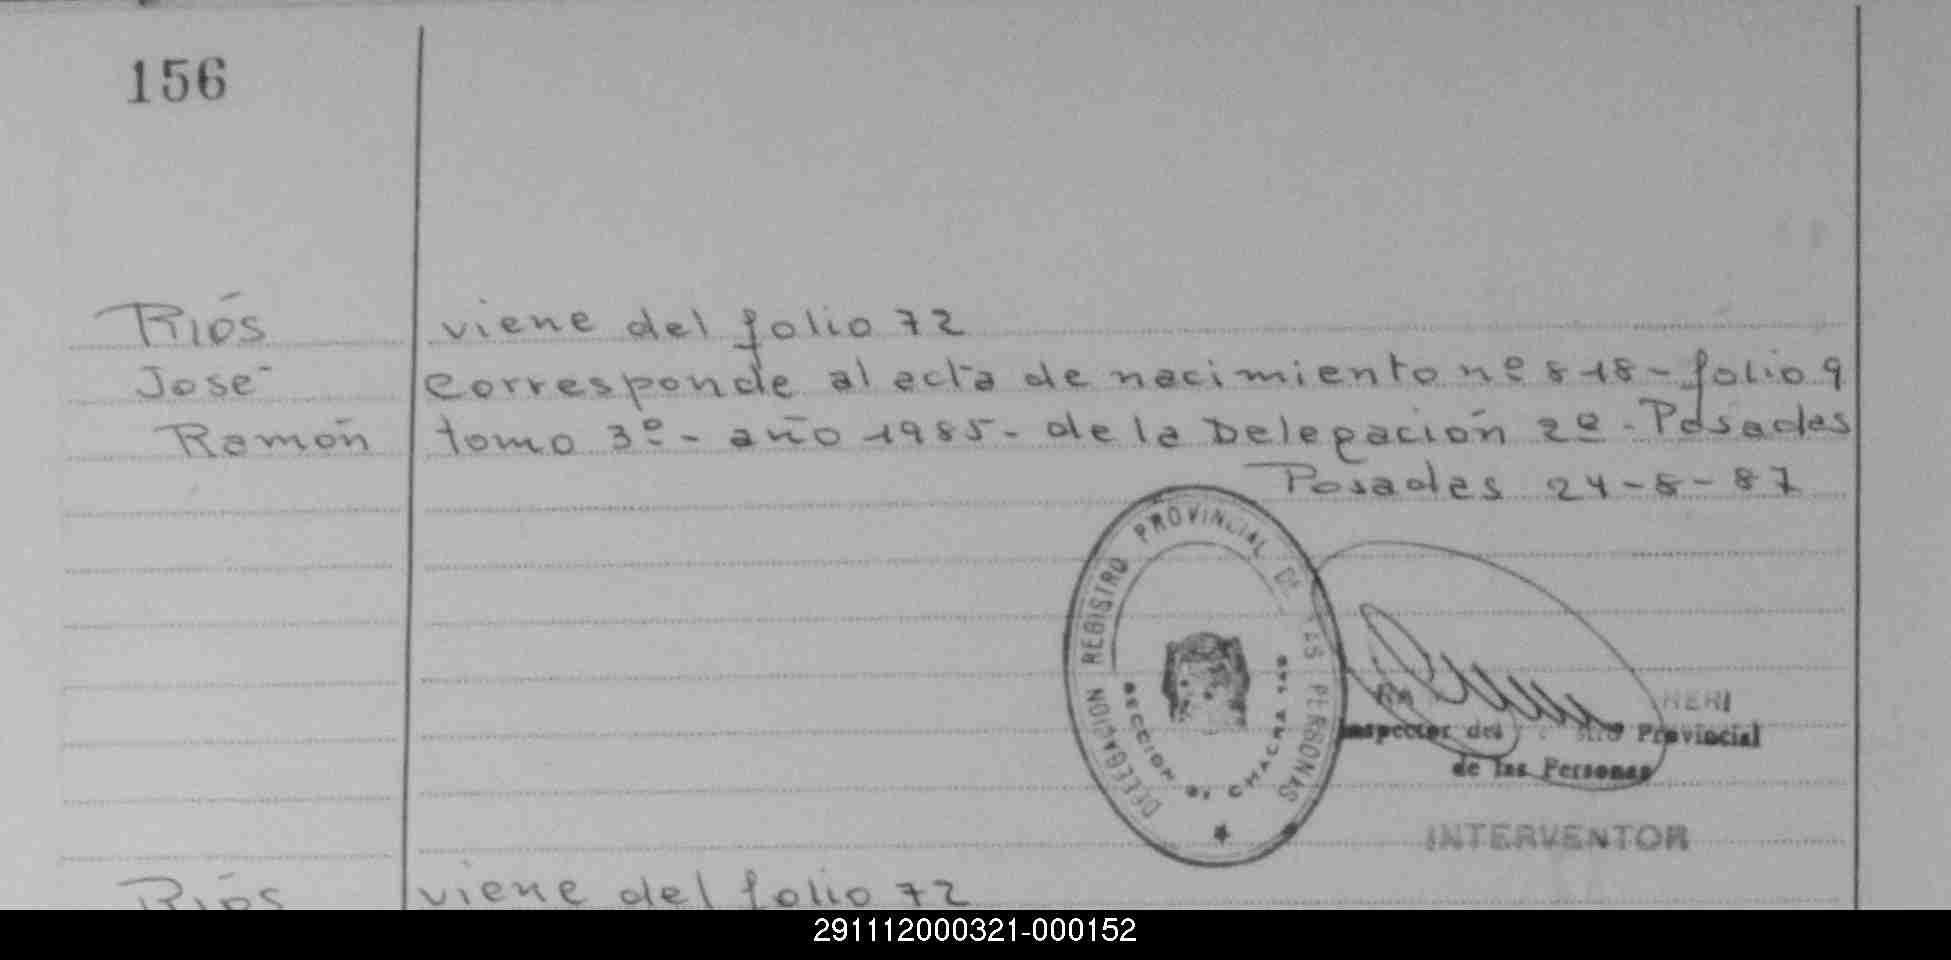 156
Ríos viene del folio 72
José corresponde al acta de nacimiento nº 818 - folio 9
Ramón tomo 3º - año 1985 - de la Delegación 2ª - Posadas
Posadas 24-8-87
DELEGACION REGISTRO PROVINCIAL DE LAS PERSONAS
SECCION CHACRA
HERI
Inspector del Provincial
de las Personas
INTERVENTOR
Ríos viene del folio 72
291112000321-000152